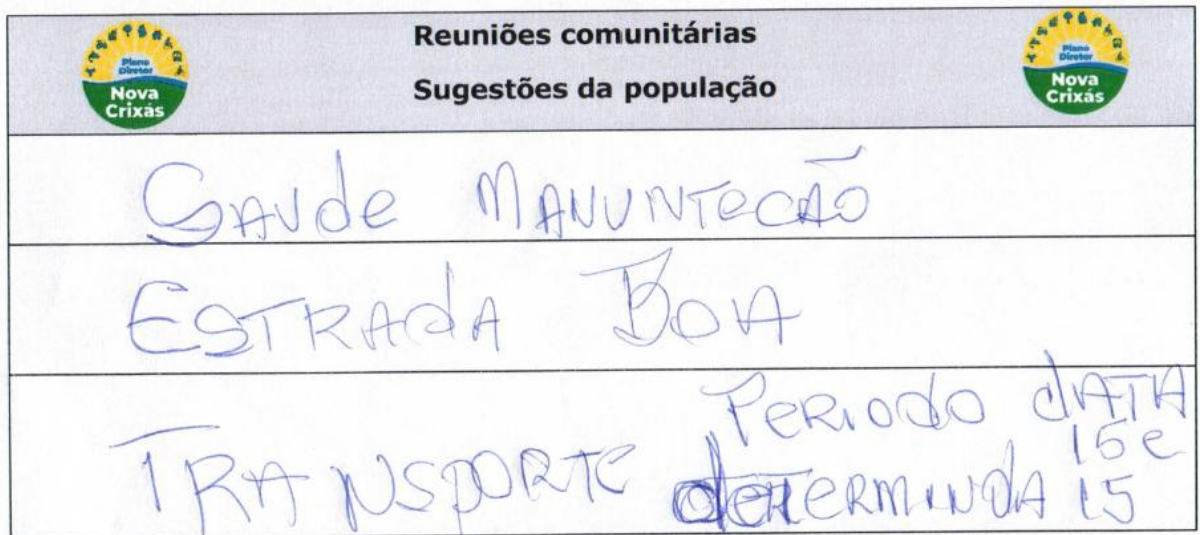 Plano
Diretor
Nova
Crixás
Reuniões comunitárias
Sugestões da população
Plano
Diretor
Nova
Crixás
SAUde MANUNTECÃO
ESTRAdA BOA
TRANSPORTE PERIODO dATA
deTERMINDA 15 e
15